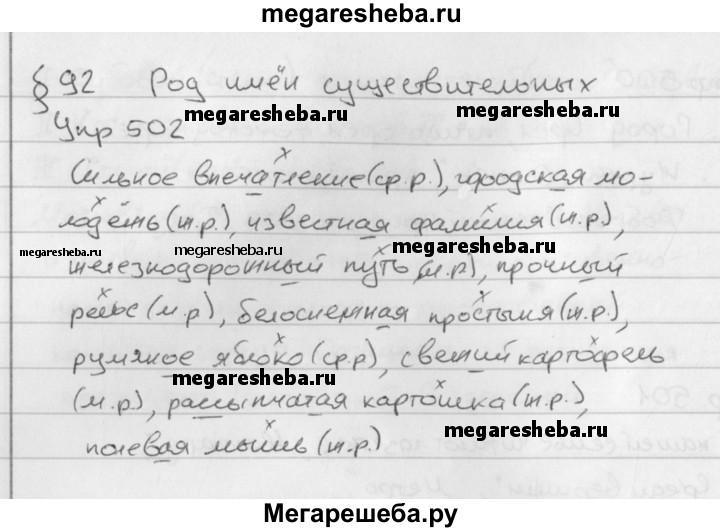 megaresheba.ru
§ 92 Род имён существительных
megaresheba.ru megaresheba.ru
Упр 502
Сильное впечатление (ср.р.), городская мо-
лодёжь (ж.р.), известная фамилия (ж.р.),
megaresheba.ru megaresheba.ru megaresheba.ru
железнодорожный путь (м.р), прочный
рельс (м.р), белоснежная простыня (ж.р),
румяное яблоко (ср.р), свежий картофель
megaresheba.ru
(м.р), рассыпчатая картошка (ж.р.),
megaresheba.ru
полевая мышь (ж.р.)
Мегарешеба.ру